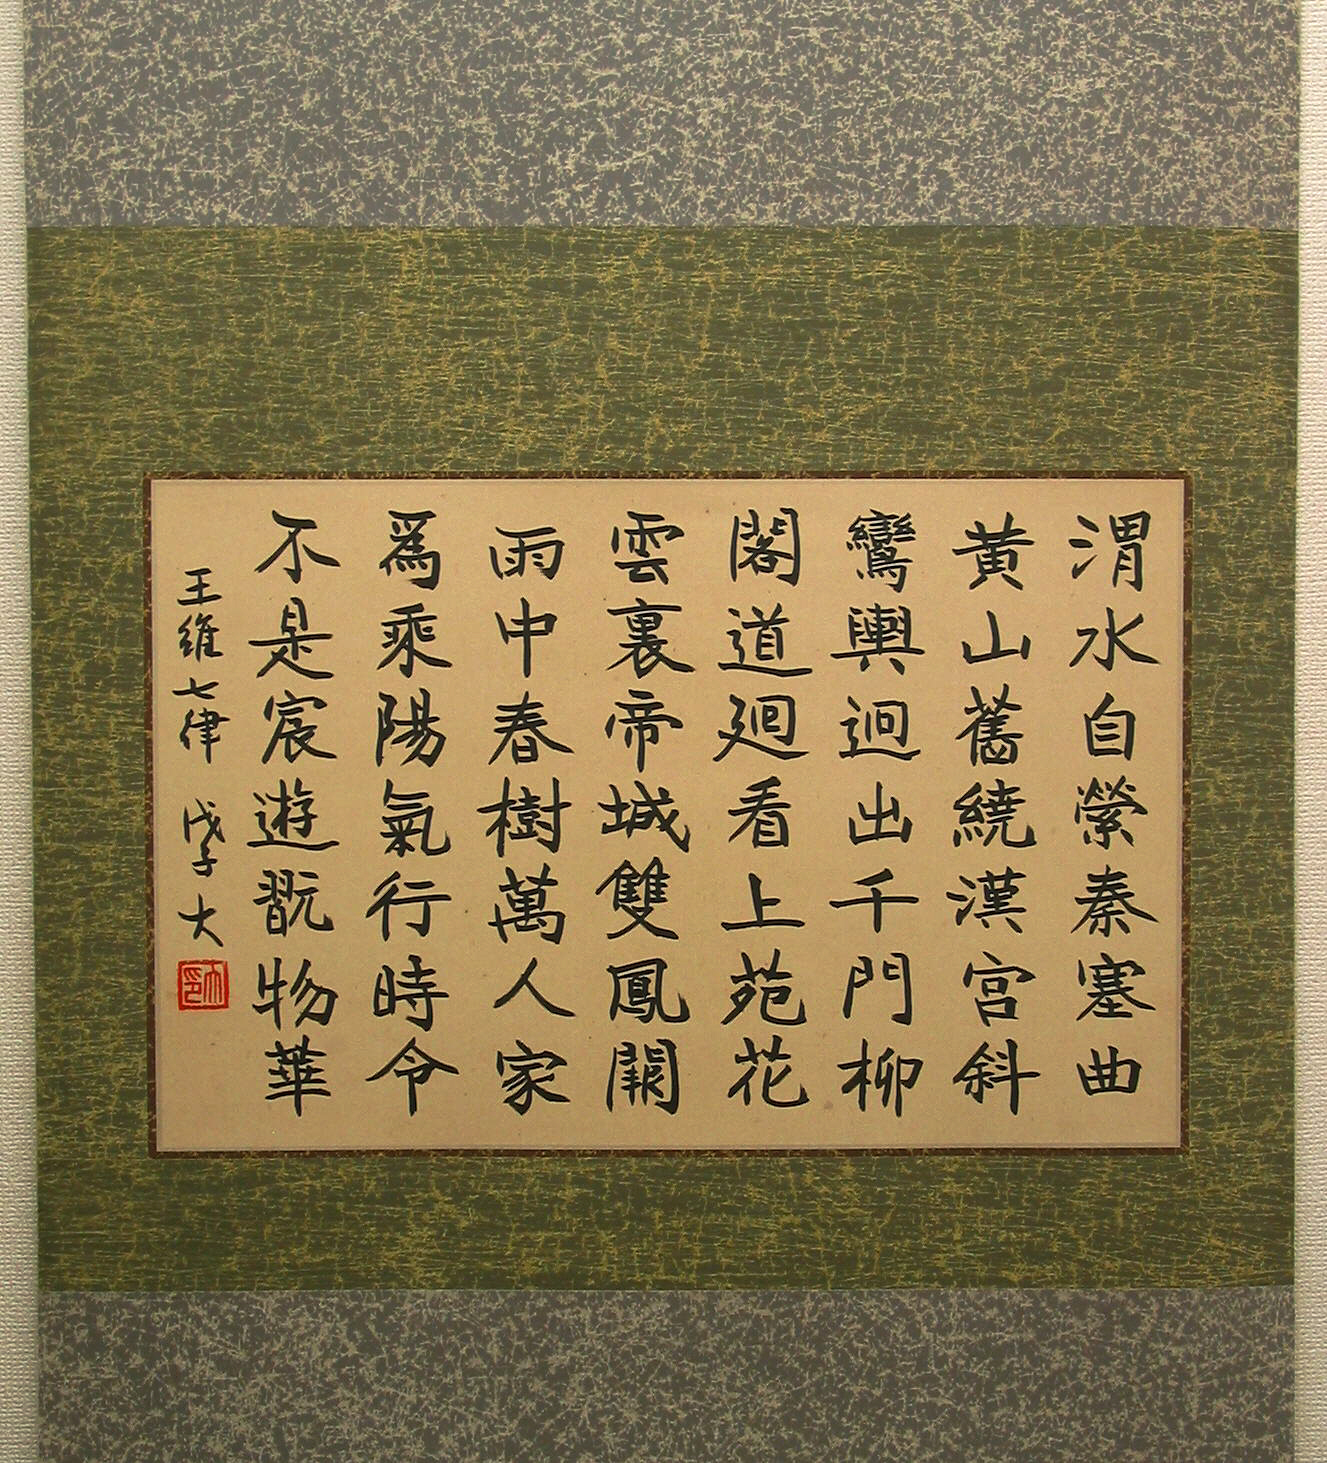 渭水自縈秦塞曲
黃山舊繞漢宮斜
鸞輿迥出千門柳
閣道廻看上苑花
雲裏帝城雙鳳闕
雨中春樹萬人家
爲乘陽氣行時令
不是宸遊翫物華
王維七律 戊子 大
大印